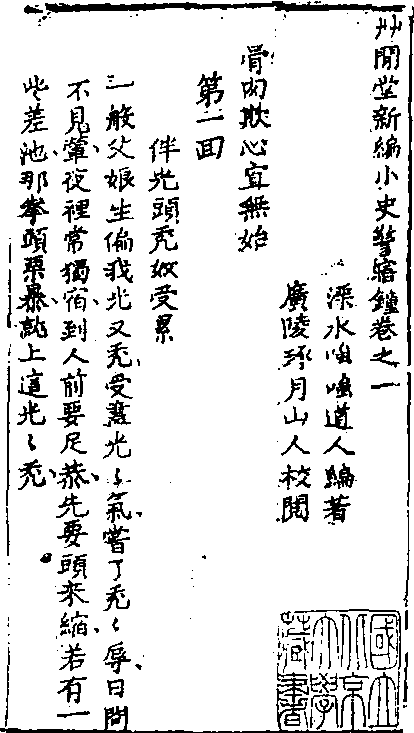 艸閒堂新編小史警寤鐘卷之一
溧水嗤嗤道人編著
廣陵琢月山人校閱
骨肉欺心宜無始
第一回
伴光頭禿奴受累
一般父娘生偏我北又禿受盡光〻氣嘗了禿〻辱日間
不見輩夜裡常獨宿到人前要足恭先要頭來縮若有一
些差池那拳頭栗暴就上這光〻禿
國立北京大學藏書